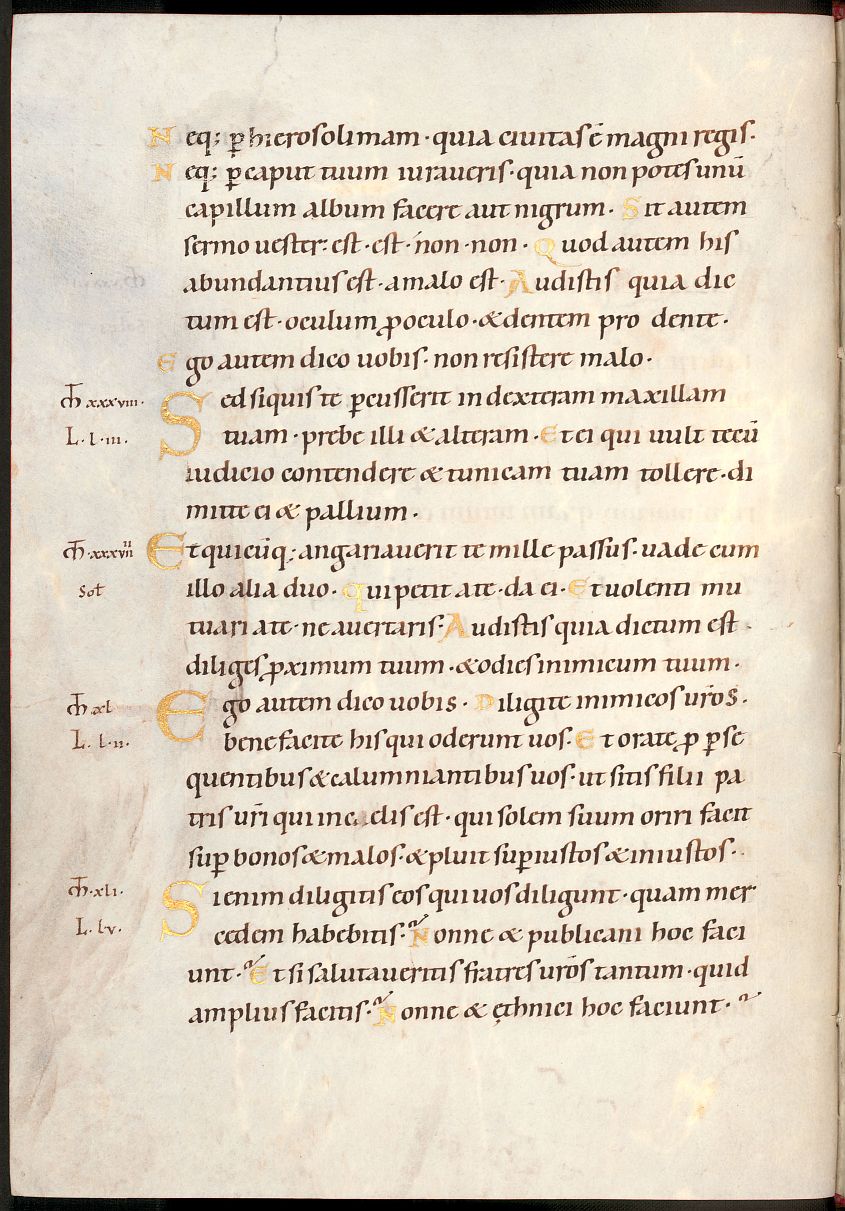 Neq; ꝑ hierosolimam · quia ciuitas ē magni regis ·
Neq; ꝑ caput tuum iuraueris · quia non potes unū
capillum album facere aut nigrum · Sit autem
sermo uester: est · est · non · non · Quod autem his
abundantius est · a malo est · Audistis quia dic
tum est · oculum ꝓ oculo · & dentem pro dente ·
Ego autem dico uobis · non resistere malo ·
m̄h xxxviiii · Sed siquis te ꝑcusserit in dexteram maxillam
L · l · iii · tuam · prebe illi & alteram · Et ei qui uult tecū
iudicio contendere & tunicam tuam tollere · di
mitte ei & pallium ·
Et quicūq; angariauerit te mille passus · uade cum
Sot illo alia duo · Qui petit a te · da ei · Et uolenti mu
tuari a te · ne auertaris · Audistis quia dictum est ·
diliges ꝓximum tuum · & odies inimicum tuum ·
m̄h xl Ego autem dico uobis · Diligite inimicos ur̄os ·
L · l · ii · benefacite his qui oderunt uos · Et orate ꝓ ꝑse
quentibus & calumniantibus uos · ut sitis filii pa
tris ur̄i qui in celis est · qui solem suum oriri facit
suꝑ bonos & malos · & pluit suꝑ iustos & iniustos ·
m̄h · xli · Si enim diligitis eos qui uos diligunt · quam mer
L · l · v · cedem habebitis · Nonne & publicani hoc faci
unt · Et si salutaueritis fratres ur̄os tantum · quid
amplius facitis · Nonne & ęthnici hoc faciunt ·